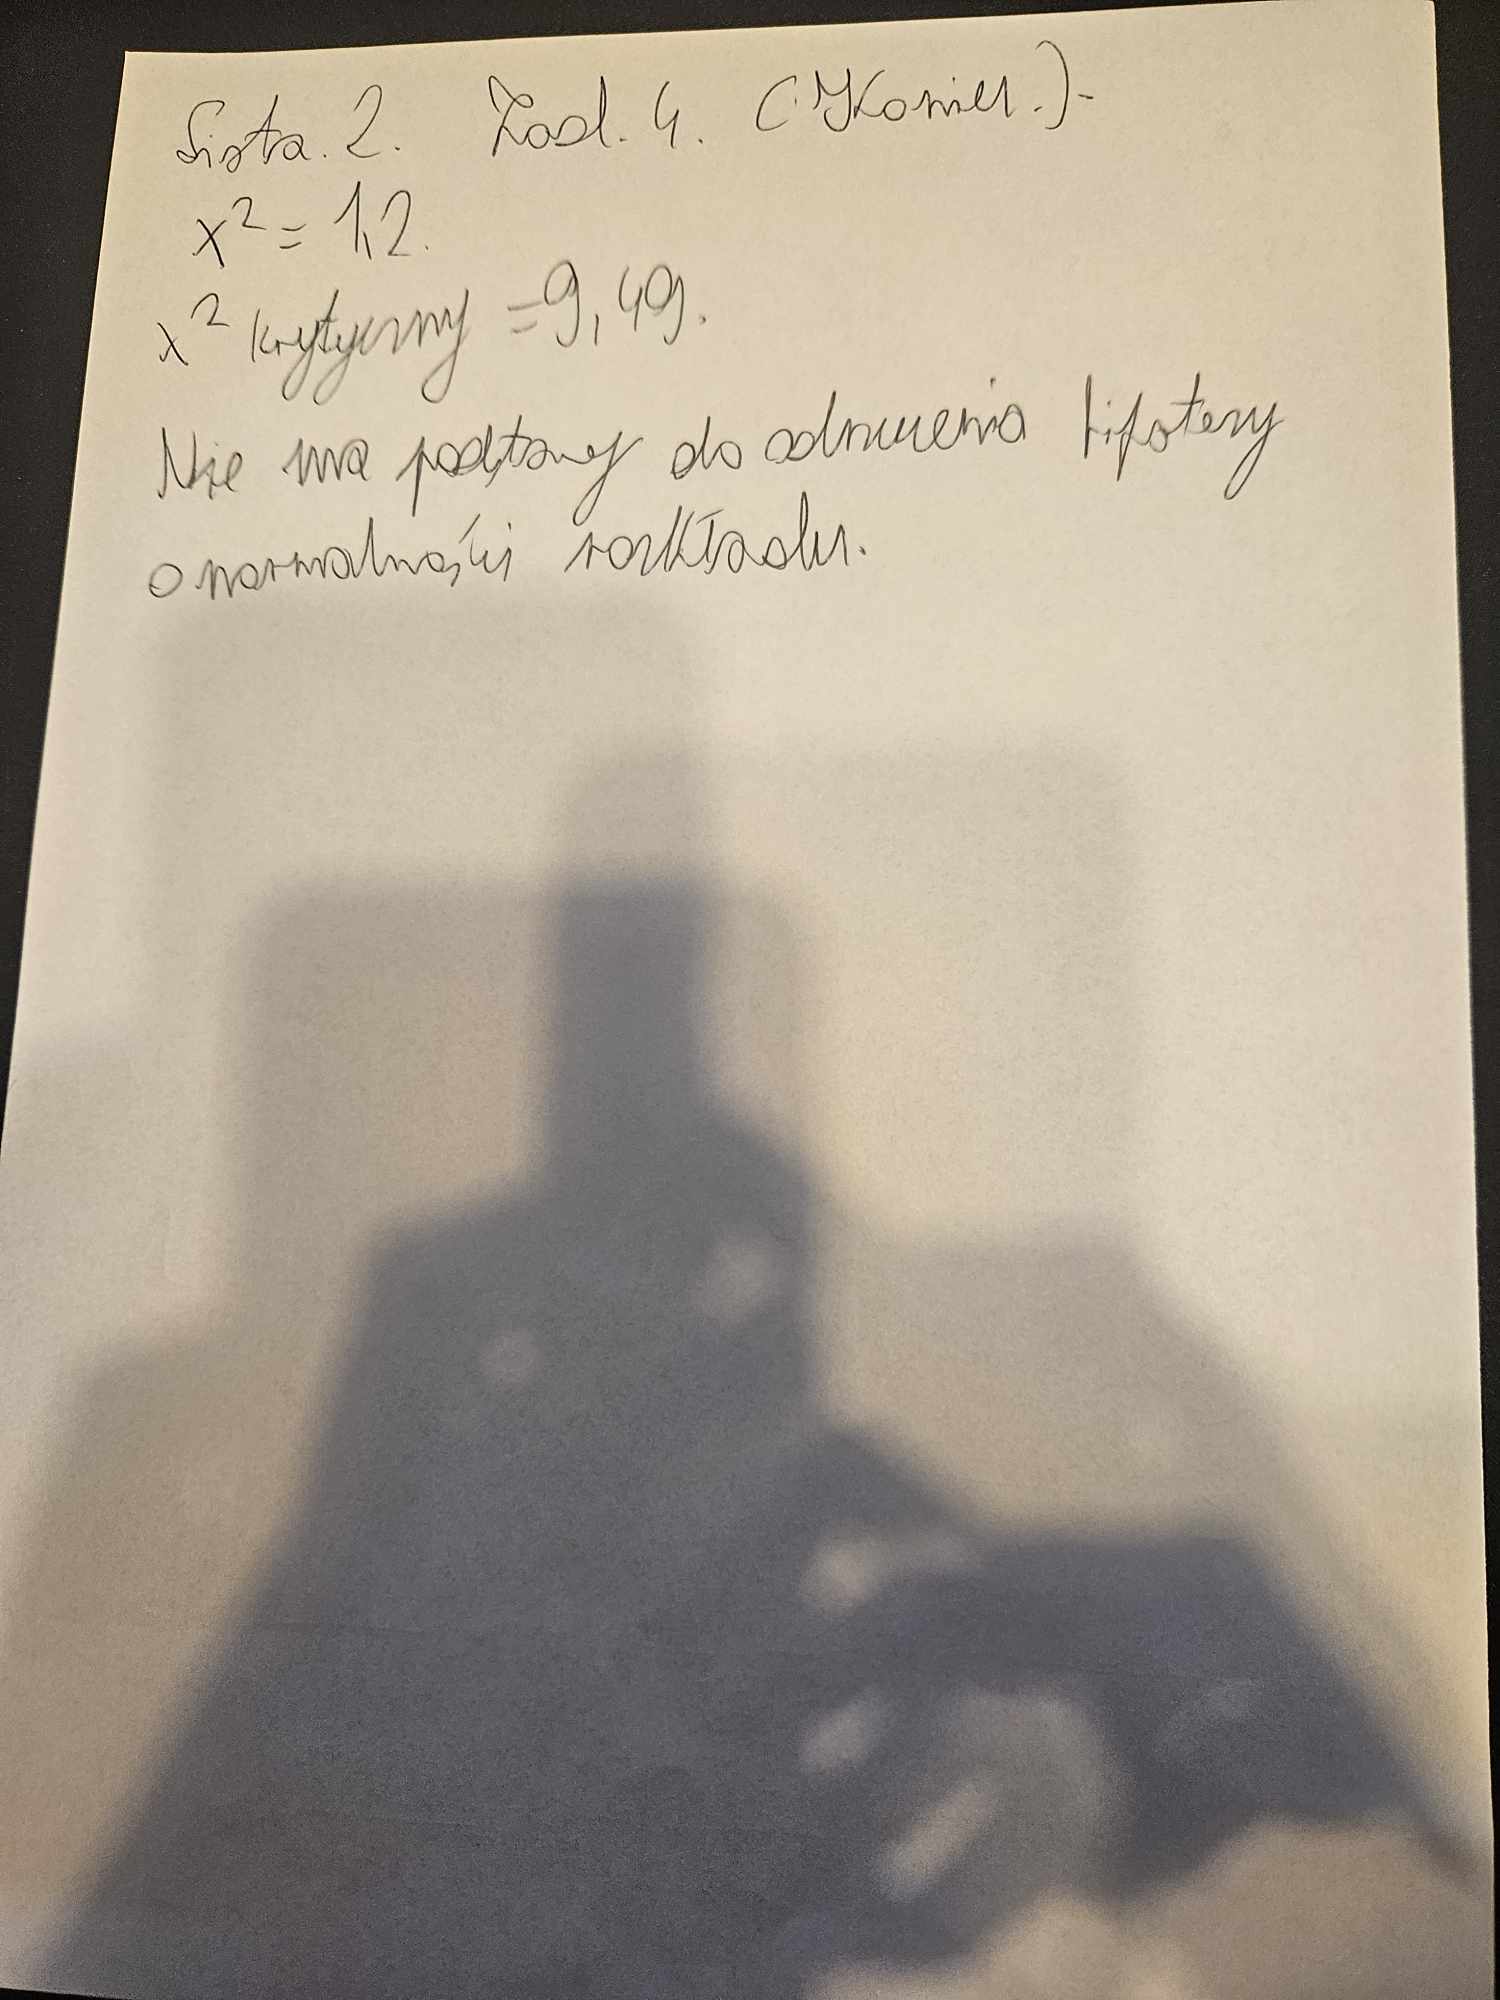 Lista. 2. Zad. 4. (Koniec.).
x² = 1,2.
x² krytyczny = 9,49.
Nie ma podstawy do odrzucenia hipotezy
o normalności rozkładu.